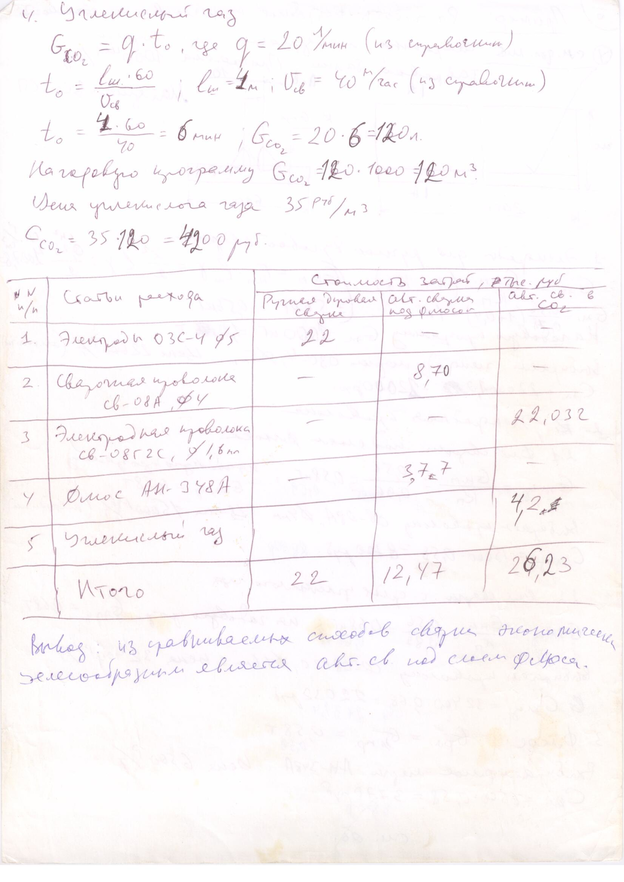 4. Углекислый газ
G_CO2 = q · t₀, где q = 20 л/мин (из справочника)
t₀ = lш · 60 / Vсв ; lш = 4 м ; Vсв = 40 м/час (из справочника)
t₀ = 4 · 60 / 40 = 6 мин ; G_CO2 = 20 · 6 = 120 л.
На годовую программу G_CO2 = 120 · 1000 = 120 м³.
Цена углекислого газа 35 руб/м³
C_CO2 = 35 · 120 = 4200 руб.
N N п/п Статьи расхода Стоимость затрат, тыс. руб
Ручная дуговая сварка Авт. сварка под флюсом Авт. св. в CO2
1. Электроды ОЗС-4 ∅5 22 — —
2. Сварочная проволока св-08А, ∅4 — 8,70 —
3 Электродная проволока св-08Г2С, ∅1,6 мм — — 22,032
4 Флюс АН-348А — 3,77 —
5 Углекислый газ 4,2
Итого 22 12,47 26,23
Вывод: из сравниваемых способов сварки экономически
целесообразным является авт. св. под слоем флюса.